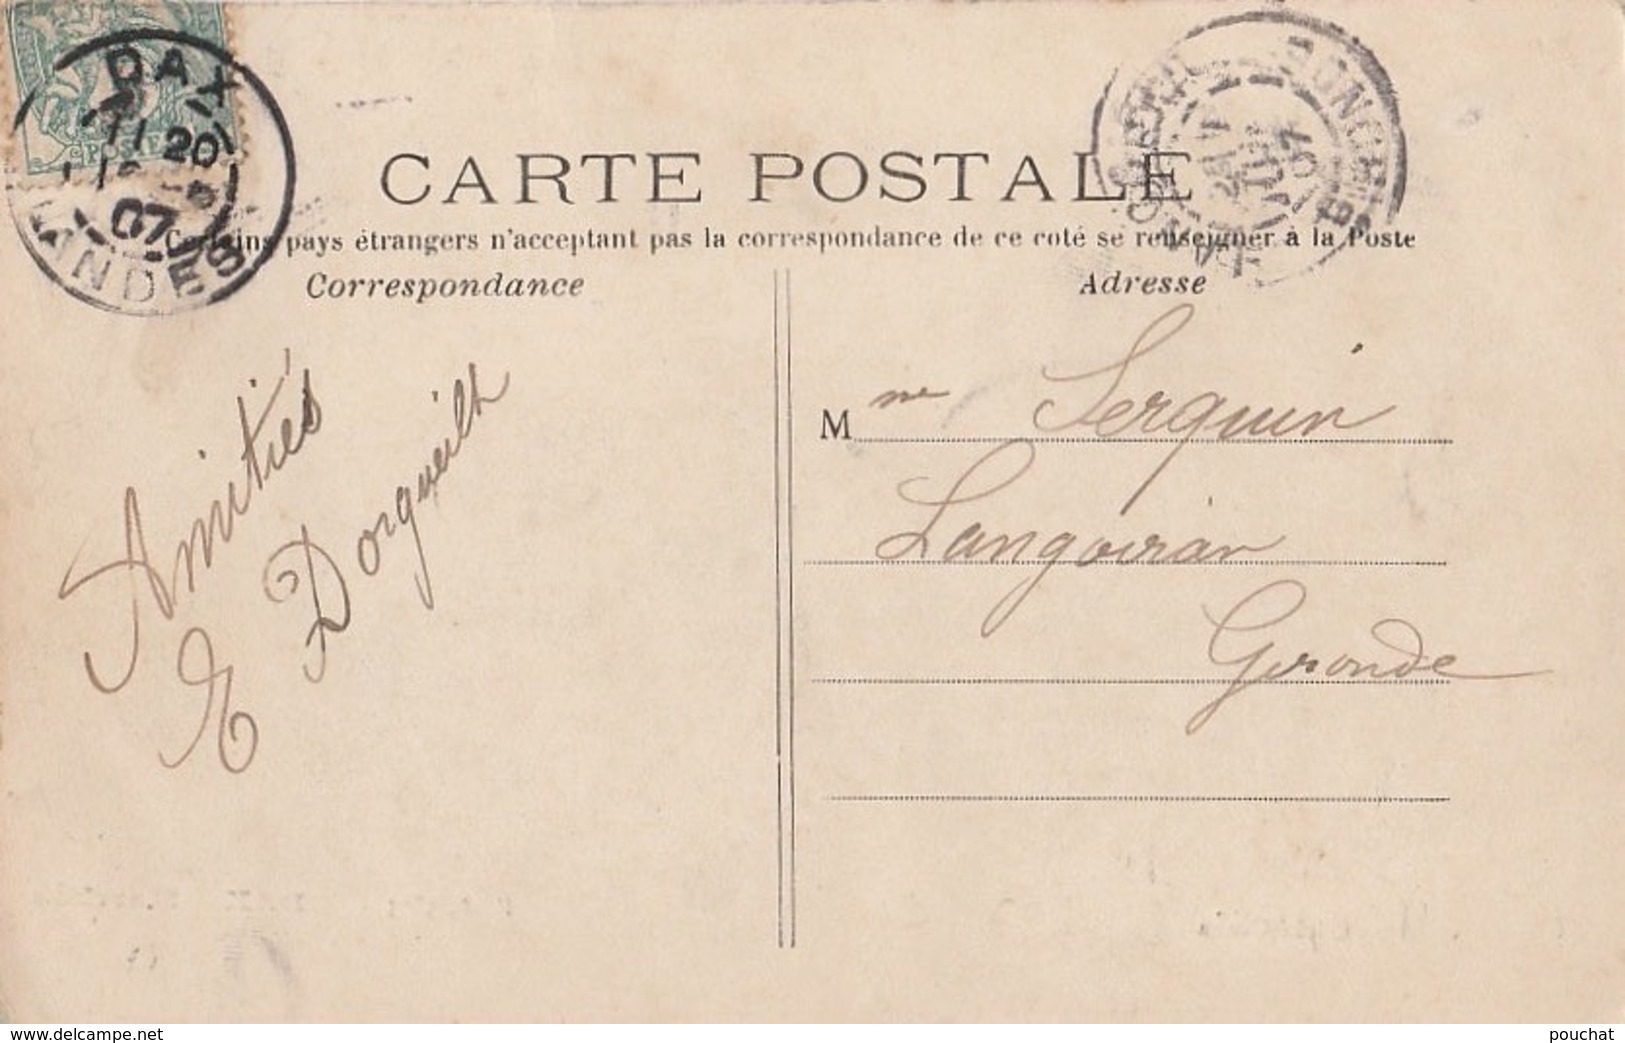 DAX
11 20
07
LANDES
POSTES
CARTE POSTALE
Certains pays étrangers n'acceptant pas la correspondance de ce coté se renseigner à la Poste
Correspondance
Adresse
Amitiés
E Dorgueilh
Mme Serquin
Langoiran
Gironde
www.delcampe.net
pouchat